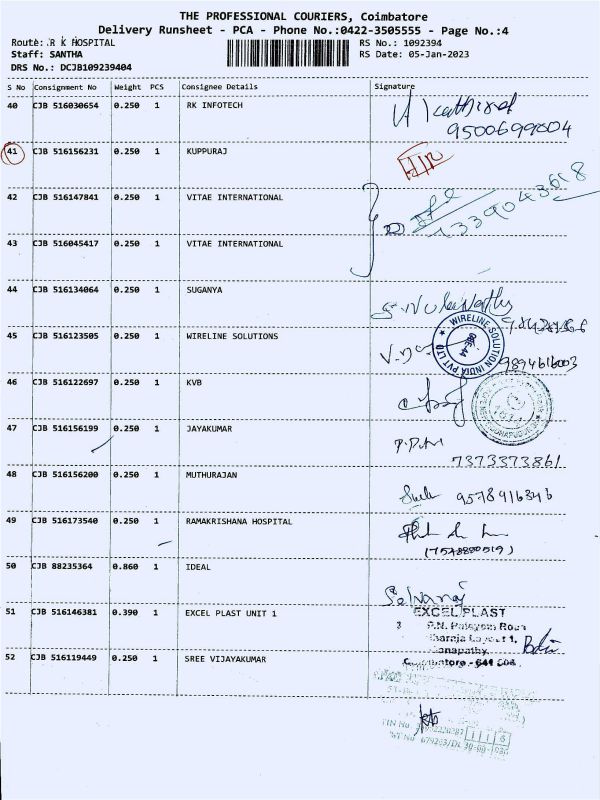 THE PROFESSIONAL COURIERS, Coimbatore
Delivery Runsheet - PCA - Phone No.:0422-3505555 - Page No.:4
Route: R K HOSPITAL RS No.: 1092394
Staff: SANTHA RS Date: 05-Jan-2023
DRS No.: DCJB109239404
S No Consignment No Weight PCS Consignee Details Signature
40 CJB 516030654 0.250 1 RK INFOTECH
9500699804
41 CJB 516156231 0.250 1 KUPPURAJ
42 CJB 516147841 0.250 1 VITAE INTERNATIONAL
43 CJB 516045417 0.250 1 VITAE INTERNATIONAL
44 CJB 516134064 0.250 1 SUGANYA
45 CJB 516123505 0.250 1 WIRELINE SOLUTIONS
WIRELINE SOLUTION INDIA PVT LTD
9894616003
46 CJB 516122697 0.250 1 KVB
47 CJB 516156199 0.250 1 JAYAKUMAR
7373373861
48 CJB 516156200 0.250 1 MUTHURAJAN
9578916346
49 CJB 516173540 0.250 1 RAMAKRISHANA HOSPITAL
50 CJB 88235364 0.860 1 IDEAL
Selvaraj
51 CJB 516146381 0.390 1 EXCEL PLAST UNIT 1
EXCEL PLAST
Coimbatore - 641
52 CJB 516119449 0.250 1 SREE VIJAYAKUMAR